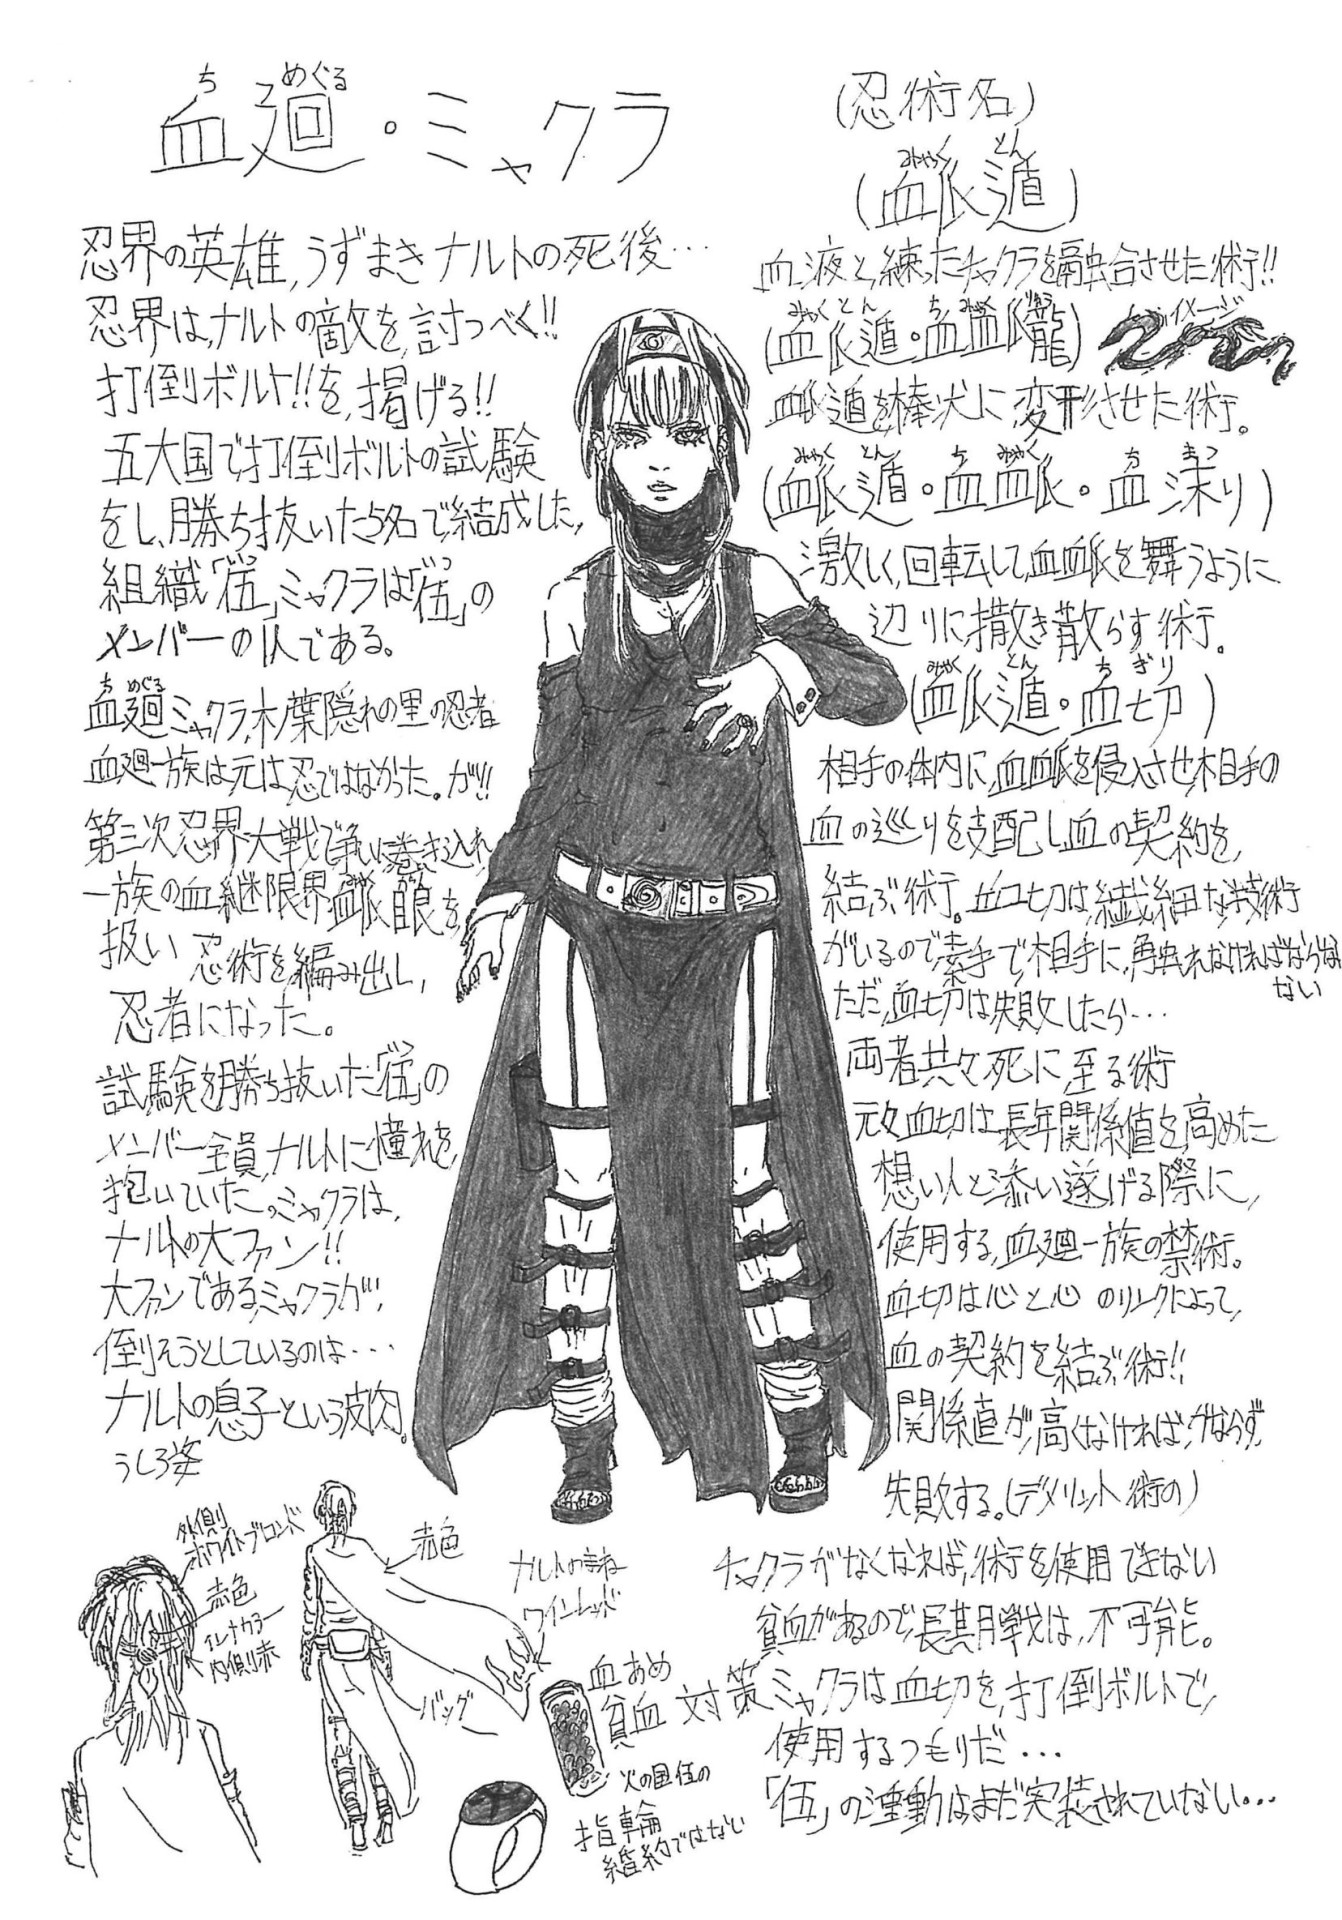 血廻・ミャクラ
ち めぐる
忍界の英雄、うずまきナルトの死後…
忍界は、ナルトの敵を、討つべく!!
打倒ボルト!!を、掲げる!!
五大国で打倒ボルトの試験
をし、勝ち抜いた5名で結成した、
組織「伍」ミャクラは「伍」の
メンバーの1人である。
血廻ミャクラ、木ノ葉隠れの里の忍者
血廻一族は元は忍ではなかった。が!!
第三次忍界大戦で争いに巻き込れ
一族の血継限界血脈眼を
扱い 忍術を編み出し、
忍者になった。
試験を勝ち抜いた「伍」の
メンバー全員、ナルトに憧れを、
抱いていた。ミャクラは、
ナルトの大ファン!!
大ファンであるミャクラが、
倒そうとしているのは…
ナルトの息子という皮肉。
うしろ姿
外側
ホワイトブロンド
赤色
インナーカラー
内側赤
赤色
バッグ
ナルトの
ワインレッド
血あめ
貧血 対策
火の国伍の
指輪
婚約ではない
(忍術名)
みゃく とん
遁)
血液と、練ったチャクラを融合させた術!!
みゃくとん ち みゃく りゅう
イメージ
遁を棒状に変形させた術。
みゃく とん ち みゃく ち まつ
激しく、回転して、血を舞うように
辺りに撒き散らす術。
みゃく とん ち ぎり
遁・血切)
相手の体内に、血を侵入させ相手の
血の巡りを支配し血の契約を、
結ぶ術。血切は、繊細な技術
がいるので素手で、相手に、触れなければならない
ただ、血切は失敗したら…
両者共々死に至る術
元々血切は、長年関係値を高めた
想い人と添い遂げる際に、
使用する、血廻一族の禁術。
血切は心と心のリンクによって、
血の契約を結ぶ術!!
関係値が、高くなければ、ならず、
失敗する。(デメリット術の)
チャクラがなくなれば、術を使用できない
貧血があるので、長期戦は、不可能。
ミャクラは血切を、打倒ボルトで、
使用するつもりだ…
「伍」の活動はまだ実装されていない…